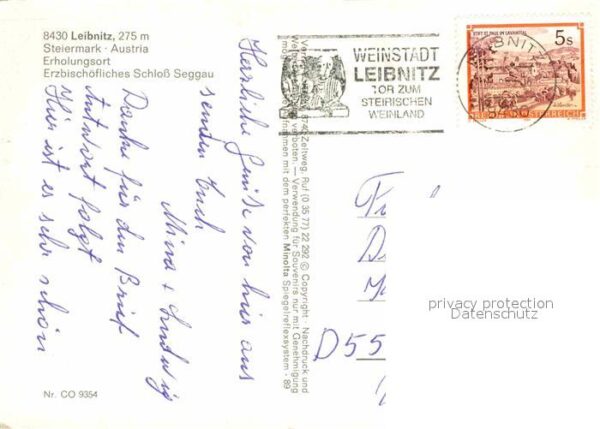 8430 Leibnitz, 275 m
Steiermark · Austria
Erholungsort
Erzbischöfliches Schloß Seggau
Herzliche Grüße von hier aus
senden Euch
Mina + Ludwig
Danke für den Brief
Antwort folgt
Hier ist es sehr schön
Nr. CO 9354
8740 Zeltweg, Ruf (0 35 77) 22 292 © Copyright - Nachdruck und
verboten. — Verwendung für Souvenirs nur mit Genehmigung
Aufnahmen mit dem perfekten Minolta Spiegelreflexsystem · 89
WEINSTADT
LEIBNITZ
TOR ZUM
STEIRISCHEN
WEINLAND
STIFT ST. PAUL IM LAVANTTAL
5 S
REPUBLIK ÖSTERREICH
LEIBNITZ
8430
D 55
privacy protection
Datenschutz